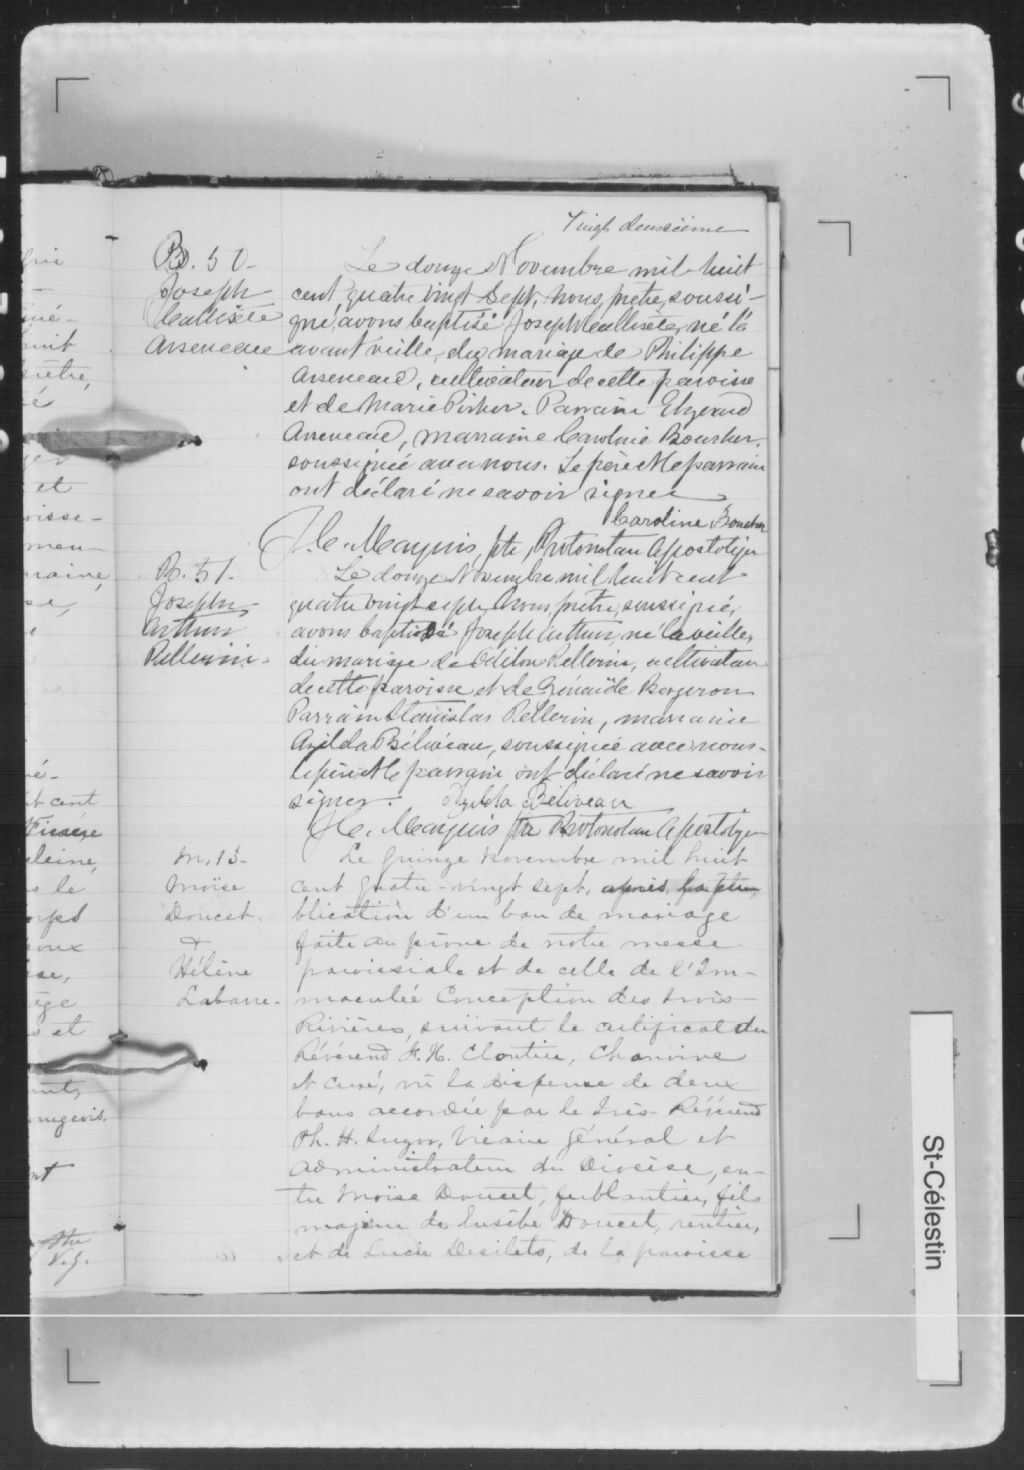 Vingt deuxième
B. 50-
Joseph
Callixte
Arseneau
Le douze Novembre mil-huit
cent quatre vingt Sept, nous, prêtre, soussi-
gné, avons baptisé Joseph Callixte, né l'a
avant veille, du mariage de Philippe
Arseneau, cultivateur de cette paroisse
et de Marie Parrain
Arseneau, marraine Caroline Boucher,
soussignée avec nous. Le père et le parrain
ont déclaré ne savoir signer
Caroline Boucher
Marquis, ptr, Protonotaire Apostolique
B. 51.
Joseph
Arthur
Pellerin.
Le douze Novembre mil huit cent
quatre vingt sept, nous, prêtre, soussigné,
avons baptisé Joseph Arthur, né la veille,
du mariage de Odilon Pellerin, cultivateur
de cette paroisse et de Zénaïde Bergeron
Parrain Stanislas Pellerin, marraine
Azilda Béliveau, soussignée avec nous.
le père et le parrain ont déclaré ne savoir
signer. Azilda Béliveau
Marquis Ptr Protonotaire Apostolique
M. 13-
Moïse
Doucet.
&
Hélène
Labarre.
Le quinze novembre mil huit
cent quatre-vingt sept, après la pu-
blication d'un ban de mariage
faite au prône de notre messe
paroissiale et de celle de l'Im-
maculée Conception des Trois-
Rivières, suivant le certificat du
Révérend H. Cloutier, Chanoine
et curé, vû la dispense de deux
bans accordée par le Très-Révérend
Ph. H. Suzor, Vicaire général et
administrateur du Diocèse, en-
tre Moïse Doucet, ferblantier, fils
majeur de Eusèbe Doucet, rentier,
et de Lucie Desilets, de la paroisse
St-Célestin